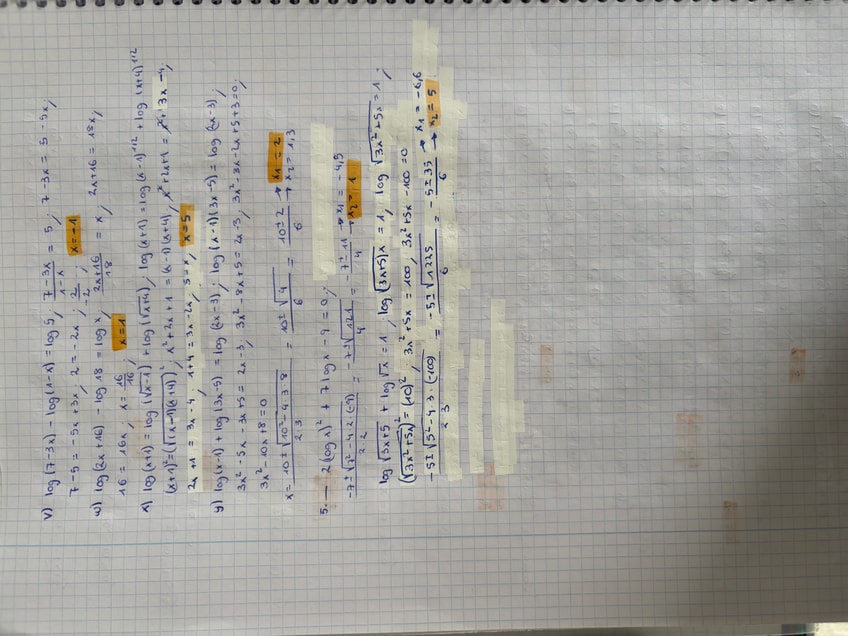 v) log(7-3x) - log(1-x) = log 5, 7-3x/1-x = 5, 7-3x = 5-5x,
7-5 = -5x+3x, 2 = -2x, 2/-2, x = -1
w) log(2x+16) - log 18 = log x, 2x+16/18 = x, 2x+16 = 18x,
16 = 16x, x = 16/16, x = 1
x) log(x+1) = log(√x-1) + log(√x+4), log(x+1) = log(x-1)^1/2 + log(x+4)^1/2
(x+1)² = (√(x-1)(x+4))², x²+2x+1 = (x-1)(x+4), x²+2x+1 = x²+3x-4,
2x+1 = 3x-4, 1+4 = 3x-2x, 5=x, x=5
y) log(x-1) + log(3x-5) = log(2x-3), log(x-1)(3x-5) = log(2x-3),
3x²-5x-3x+5 = 2x-3, 3x²-8x+5 = 2x-3, 3x²-8x-2x+5+3=0,
3x²-10x+8=0
x = 10±√10²-4·3·8/2·3 = 10±√4/6 = 10±2/6 → x1 = 2 → x2 = 1,3
5. — 2(log x)² + 7 log x - 9 = 0,
-7±√7²-4·2·(-9)/2·2 = -7±√121/4 = -7±11/4 → x1 = -4,5 → x2 = 1
log √3x+5 + log √x = 1, log √(3x+5)x = 1, log √3x²+5x = 1,
(√3x²+5x)² = (10)², 3x²+5x = 100, 3x²+5x-100=0
-5±√5²-4·3·(-100)/2·3 = -5±√1225/6 = -5±35/6 → x1 = -6,6 → x2 = 5